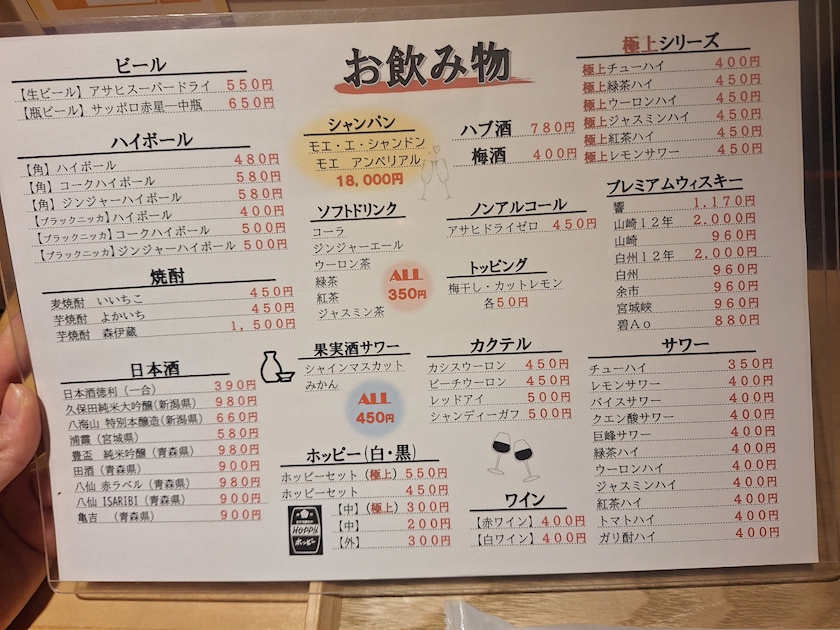 お飲み物
ビール
【生ビール】アサヒスーパードライ 550円
【瓶ビール】サッポロ赤星―中瓶 650円
ハイボール
【角】ハイボール 480円
【角】コークハイボール 580円
【角】ジンジャーハイボール 580円
【ブラックニッカ】ハイボール 400円
【ブラックニッカ】コークハイボール 500円
【ブラックニッカ】ジンジャーハイボール 500円
焼酎
麦焼酎 いいちこ 450円
芋焼酎 よかいち 450円
芋焼酎 森伊蔵 1,500円
日本酒
日本酒徳利（一合） 390円
久保田純米大吟醸(新潟県) 980円
八海山 特別本醸造(新潟県) 660円
浦霞（宮城県） 580円
豊盃 純米吟醸（青森県） 980円
田酒（青森県） 900円
八仙 赤ラベル（青森県） 980円
八仙 ISARIBI（青森県） 900円
亀吉 （青森県） 900円
シャンパン
モエ・エ・シャンドン
モエ アンペリアル
18,000円
ハブ酒 780円
梅酒 400円
ソフトドリンク
コーラ
ジンジャーエール
ウーロン茶
緑茶
紅茶
ジャスミン茶
ALL
350円
ノンアルコール
アサヒドライゼロ 450円
トッピング
梅干し・カットレモン
各50円
果実酒サワー
シャインマスカット
みかん
ALL
450円
カクテル
カシスウーロン 450円
ピーチウーロン 450円
レッドアイ 500円
シャンディーガフ 500円
ホッピー(白・黒)
ホッピーセット（極上） 550円
ホッピーセット 450円
【中】（極上） 300円
【中】 200円
【外】 300円
HOPPY
ホッピー
ワイン
【赤ワイン】400円
【白ワイン】400円
極上シリーズ
極上チューハイ 400円
極上緑茶ハイ 450円
極上ウーロンハイ 450円
極上ジャスミンハイ 450円
極上紅茶ハイ 450円
極上レモンサワー 450円
プレミアムウィスキー
響 1,170円
山崎12年 2,000円
山崎 960円
白州12年 2,000円
白州 960円
余市 960円
宮城峡 960円
碧Ao 880円
サワー
チューハイ 350円
レモンサワー 400円
バイスサワー 400円
クエン酸サワー 400円
巨峰サワー 400円
緑茶ハイ 400円
ウーロンハイ 400円
ジャスミンハイ 400円
紅茶ハイ 400円
トマトハイ 400円
ガリ酎ハイ 400円